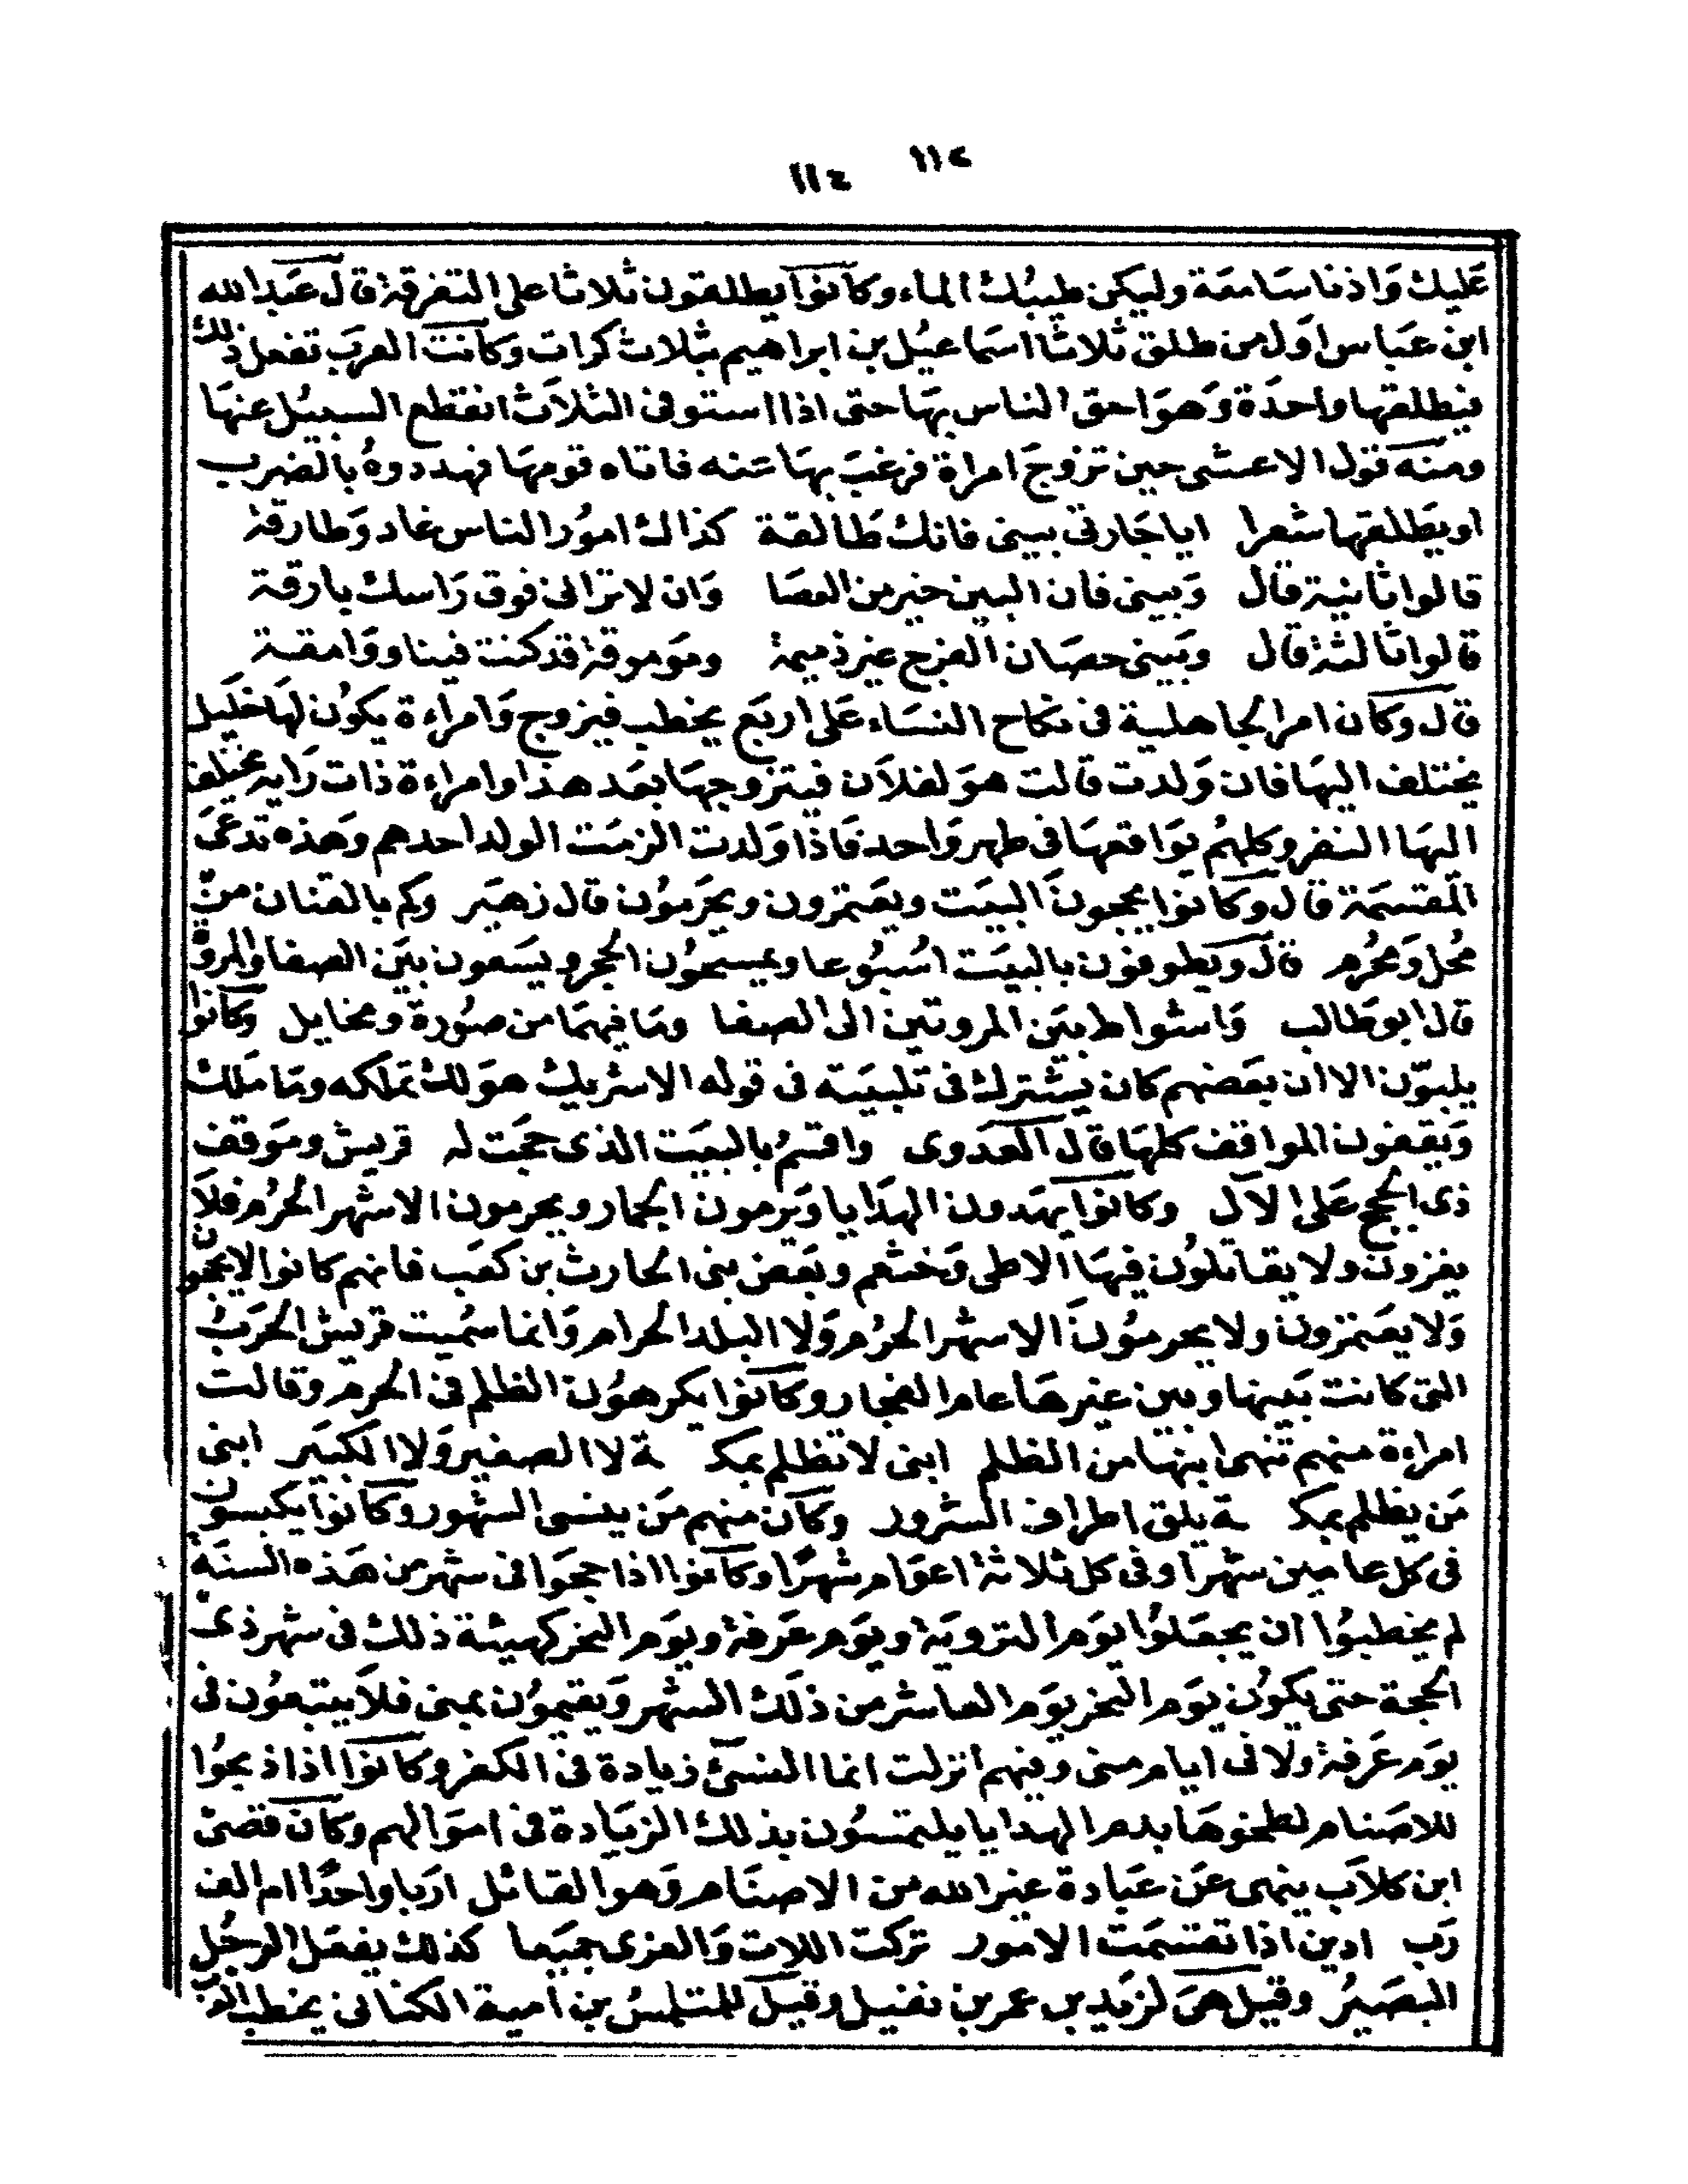 ١١٢
١١٤
عَليك وَاذنا سَامعَة وليكن طيبُك الماء وكانوا يطلقون ثلاثا على التفرقة قال عَبد الله
ابن عَباس اوَل من طلق ثلاثا اسمَاعيُل بن ابراهيم بثلاث كرات وكانت العربَ تفعل ذلك
فيطلقها واحدَة وَهوَ احق الناس بهَا حتى اذا استوفى الثلاَث انقطع السبيُل عنهَا
ومنه قول الاعشى حين تزوجَ امراة فرغبَ بهَا عنه فاتاه قومهَا فهددوهُ بالضرب
او يَطلقها شعرا ايا جَارتى بينى فانك طَالقة كذاك امورُ الناس غاد وَطارقة
قالوا ثانية قال وَبينى فان البين خير من العصَا وَان لا تزالى فوق رَاسك بارقة
قالوا ثالثة قال وبَينى حصَان الفرج غير ذميمة ومَوموقة قد كنت فينا ووَامقة
قال وكان امر الجاهلية فى نكاح النسَاء عَلى اربَع يخطب فيزوج وَامراءة يكوُن لهَا خَليل
يختلف اليهَا فان وَلدت قالت هوَ لفلاَن فيتزوجهَا بعَد هذا وامراءة ذات رَاية يختلف
اليهَا النفر وكلهمُ يوَاقعهَا فى طهر وَاحد فَاذا وَلدت الزمَت الولد احدهم وَهَذه تدعىَ
المقسَمة قال وكانوا يحجونَ البيَت ويعَتمرون ويحَرموُن قال زهيَر وكم بالقنان من
مُحل وَمحُرم قال ويَطوفون بالبيَت اسُبُوعا ويمسحوُن الحجر ويسَعون بيَن الصفا والمروة
قال ابو طَالب وَاشواط بيَن المروتين الى الصفا ومَا فيهمَا من صُورة ومخايل وكانوا
يلبوّن الا ان بعَضهم كان يشترك فى تلبيَته فى قوله الا شريك هوَ لك تملكه ومَا مَلك
وَيقفون المواقف كلهَا قال العدَوى واقسمُ بالبيَت الذى حجَت له قريش ومَوقف
ذى الحجج عَلى الآل وكانوا يهَدون الهدَايا وَيَرمون الجمار ويحرمون الاشهر الحُرم فلاَ
يغزون ولا يقاتلوُن فيهَا الا طى وَخثعم وبعَض بنى الحارث بن كعَب فانهم كانوا لا يحجون
وَلا يعَتمرون ولا يحرموُنَ الاشهر الحرُم وَلا البلد الحرام وَانما سُميت قريش الحَربُ
التى كانت بَينها وبين غيرهَا عام الفجار وكانوا يكرهوُن الظلم فى الحرم وقالت
امراءة منهم تنهى ابنها من الظلم ابنى لا تظلم بمكة لا الصغير وَلا الكبيَر ابنى
مَن يظلم بمكة يلق اطراف الشرور وكان منهم مَن ينسى الشهور وكانوا يكبسون
فى كل عامين شهرا وفى كل ثلاثة اعوَام شهرًا وكانوا اذا حجَوا فى شهر من هَذه السنَة
لم يخطبُوا ان يجعَلوُا يوَم الترويَة ويَوم عَرفة ويوَم النحر كهيئة ذلك فى شهر ذى
الحجة حتى يكوُن يوَم النحر يوَم العاشر من ذلَك الشهر وَيقيموُن بمنى فلاَ يبتعوُن فى
يوَم عَرفة ولا فى ايام منى وفيهم انزلت انما النسئ زيادة فى الكفر وكانوا اذا ذبحوُا
للاصَنام لطخوهَا بدم الهدايا يلتمسُون بذلك الزيَادة فى اموَالهم وكان قصى
ابن كلاَب ينهى عَن عَبادة غير الله من الاصنَام وَهو القائل اربَا واحدًا ام الف
رَب ادين اذا تقسمَت الامور تركت اللات وَالعزى جميَعا كذلك يفعَل الرجُل
البصَيرُ وقيل هىَ لزيَد بن عمر بن نفيل وقيَل للمتلمسُ بن امية الكنانى يخطب العرب